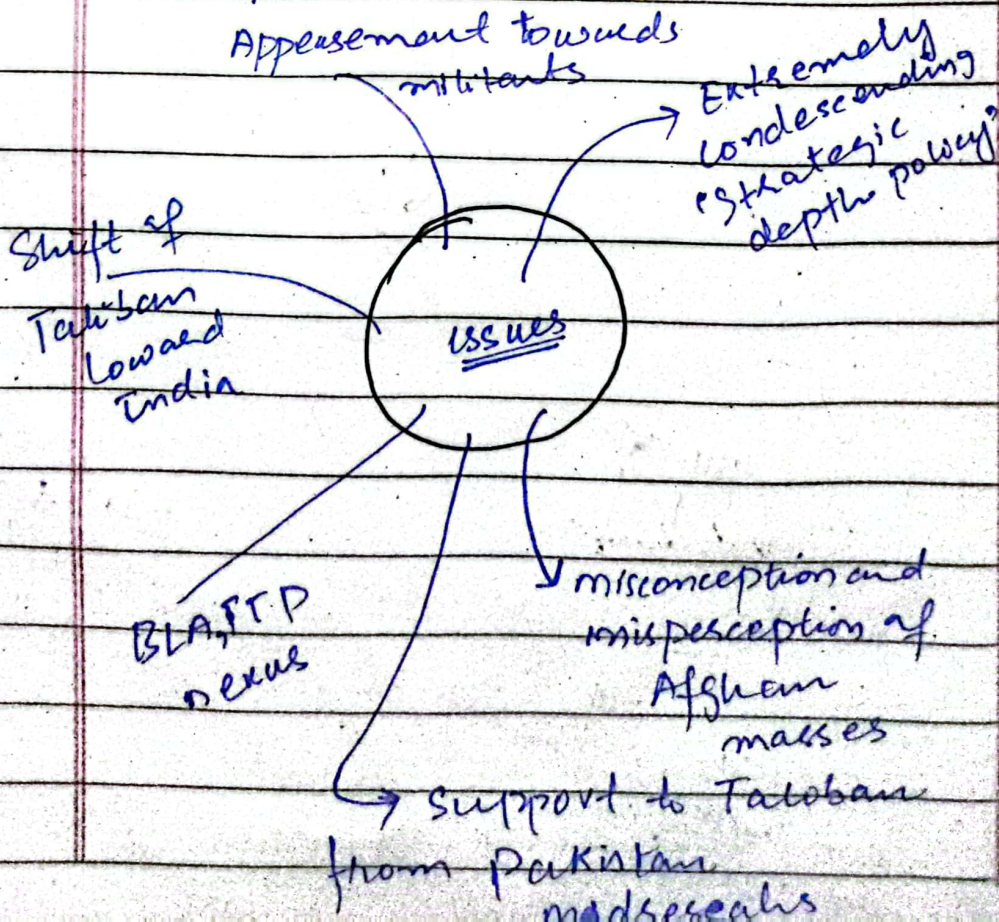 Appeasement towards
militants
Extremely
condescending
"strategic
depth policy"
Shift of
Taliban
toward
India
issues
BLA, TTP
nexus
misconception and
misperception of
Afghan
masses
Support to Taloban
from Pakistan